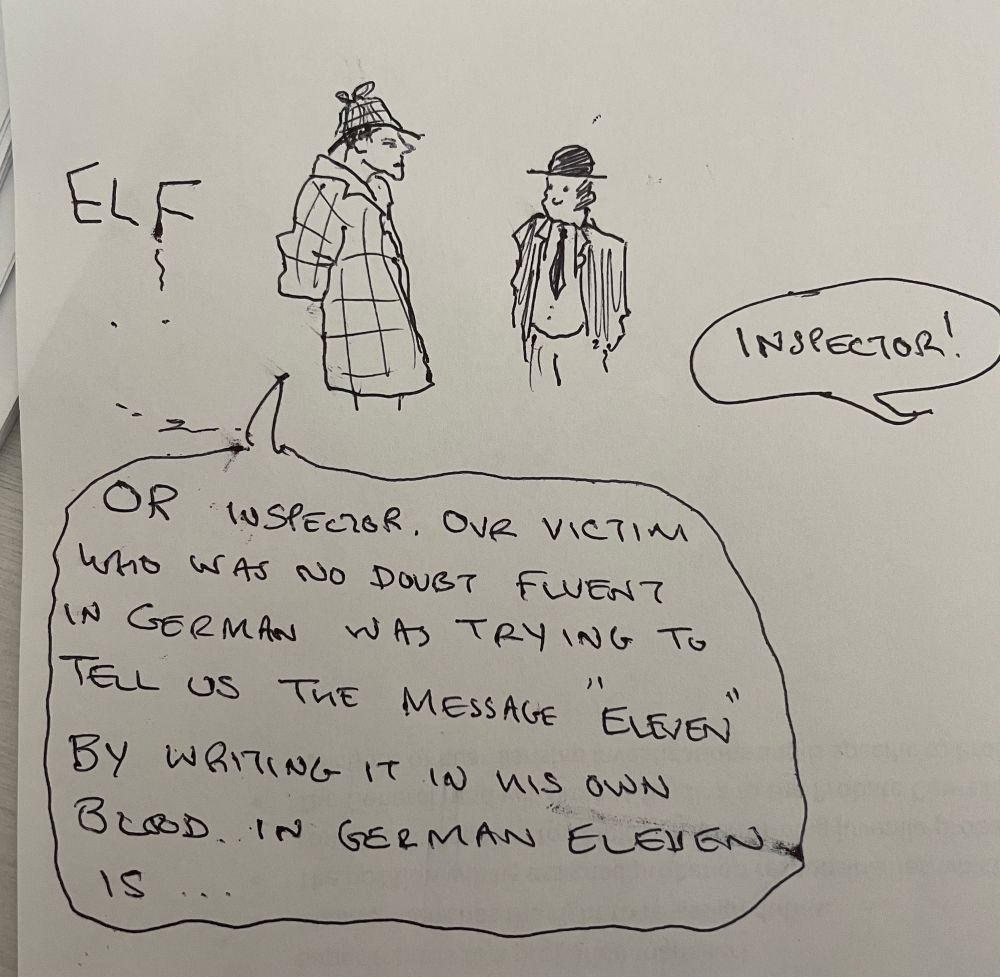 ELF
INSPECTOR!
OR INSPECTOR. OUR VICTIM
WHO WAS NO DOUBT FLUENT
IN GERMAN WAS TRYING TO
TELL US THE MESSAGE "ELEVEN"
BY WRITING IT IN HIS OWN
BLOOD. IN GERMAN ELEVEN
IS ...